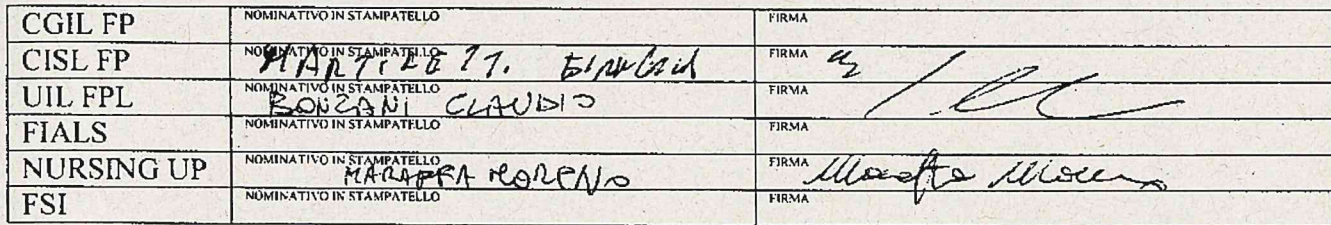 CGIL FP NOMINATIVO IN STAMPATELLO FIRMA
CISL FP NOMINATIVO IN STAMPATELLO FIRMA
UIL FPL NOMINATIVO IN STAMPATELLO BONZANI CLAUDIO FIRMA
FIALS NOMINATIVO IN STAMPATELLO FIRMA
NURSING UP NOMINATIVO IN STAMPATELLO MORENO FIRMA
FSI NOMINATIVO IN STAMPATELLO FIRMA